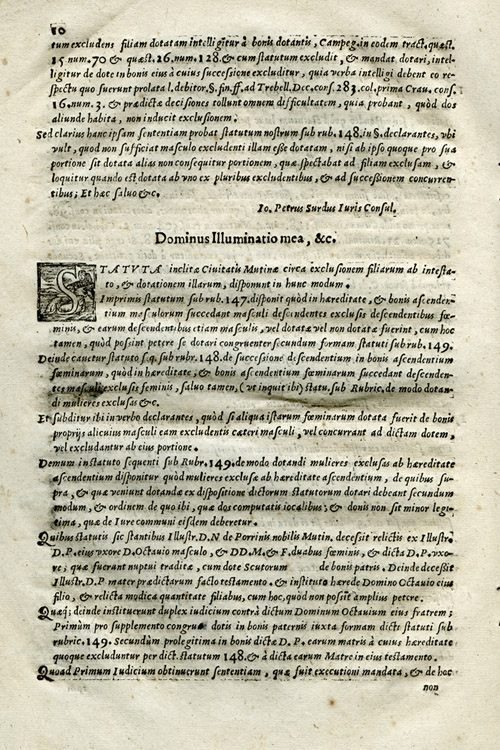 10
tum excludens filiam dotatam intelligitur à bonis dotantis, Campeg. in eodem tract. quæst.
15. num. 70 & quæst. 16. num. 128. & cum statutum excludit, & mandat dotari, intel-
ligitur de dote in bonis eius à cuius successione excluditur, quia verba intelligi debent co re-
spectu quo fuerunt prolata l. debitor. §. fin. ff. ad Trebell. Dec. cons. 283. col. prima Crau. cons.
16. num. 3. & prædictæ decisiones tollunt omnem difficultatem, quia probant, quòd dos
aliunde habita, non inducit exclusionem.
Sed clarius hanc ipsam sententiam probat statutum nostrum sub rub. 148. in §. declarantes, vbi
vult, quod non sufficiat masculo excludenti illam esse dotatam, nisi ab ipso quoque pro sua
portione sit dotata alias non consequitur portionem, quæ spectabat ad filiam exclusam, &
loquitur quando est dotata ab vno ex pluribus excludentibus, & ad successionem concurren-
tibus; Et hæc saluo &c.
Io. Petrus Surdus Iuris Consul.
Dominus Illuminatio mea, &c.
STATVTA inclitæ Ciuitatis Mutinæ circa exclusionem filiarum ab intesta-
to, & dotationem illarum, disponunt in hunc modum.
Imprimis statutum sub rub. 147. disponit quòd in hæreditate, & bonis ascenden-
tium masculorum succedant masculi descendentes exclusis descendentibus fœ-
minis, & earum descendentibus etiam masculis, vel dotatæ vel non dotatæ fuerint, cum hoc
tamen, quòd possint petere se dotari congruenter secundum formam statuti sub rub. 149.
Deinde cauetur statuto seq. sub rubr. 148. de successione descendentium in bonis ascendentium
fœminarum, quòd in hæreditate; & bonis ascendentium fœminarum succedant descenden-
tes masculi exclusis feminis, saluo tamen, (vt inquit ibi) statu. sub Rubric. de modo dotan-
di mulieres exclusas &c.
Et subditur ibi in verbo declarantes, quòd si aliqua istarum fœminarum dotata fuerit de bonis
proprijs alicuius masculi eam excludentis cæteri masculi, vel concurrant ad dictam dotem,
vel excludantur ab eius portione.
Demum in statuto sequenti sub Rubr. 149. de modo dotandi mulieres exclusas ab hæreditate
ascendentium disponitur quòd mulieres exclusæ ab hæreditate ascendentium, de quibus su-
pra, & quæ veniunt dotandæ ex dispositione dictorum statutorum dotari debeant secundum
modum, & ordinem de quo ibi, quæ dos computatis iocalibus; & donis non sit minor legi-
tima, quæ de Iure communi eisdem deberetur.
Quibus statutis sic stantibus Illustr. D. N de Porrinis nobilis Mutin. decessit relictis ex Illustr.
D. P. eius vxore D. Octauio masculo, & DD. M. & F. duabus fœminis, & dicta D. P. vxo-
re; quæ fuerunt nuptui traditæ, cum dote Scutorum de bonis patris. Deinde decessit
Illustr. D. P mater prædictarum facto testamento. & instituto hærede Domino Octauio eius
filio, & relicta modica quantitate filiabus, cum hoc, quòd non possit amplius petere.
Quæq; deinde instituerunt duplex iudicium contrà dictum Dominum Octauium eius fratrem;
Primùm pro supplemento congruæ dotis in bonis paternis iuxta formam dicti statuti sub
rubric. 149. Secundùm pro legitima in bonis dictæ D. P. earum matris à cuius hæreditate
quoque excluduntur per dict. statutum 148. & à dicta earum Matre in eius testamento.
Quoad Primum Iudicium obtinuerunt sententiam, quæ fuit executioni mandata, & de hoc
non